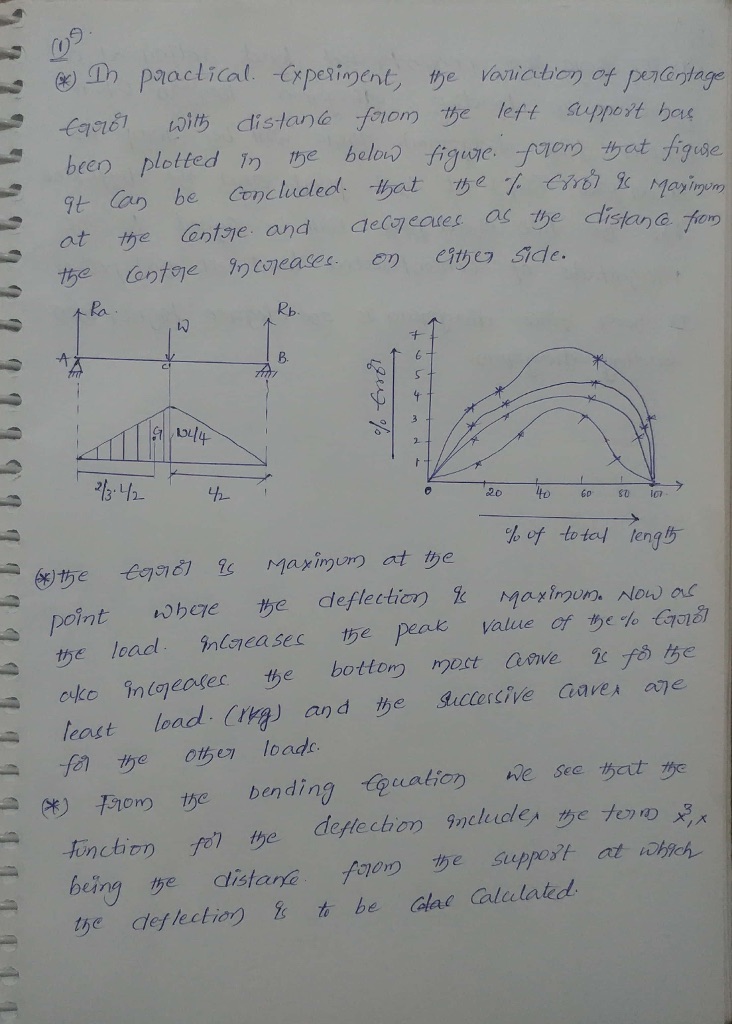 (1)A)
(*) In practical. Experiment, the variation of percentage
Error with distance from the left support has
been plotted in the below figure. from that figure
it can be concluded. that the % Error is maximum
at the centre. and decreases as the distance from
the centre increases. on either side.
Ra.
W
Rb.
A
C
B
G
WL/4
2/3·L/2
L/2
% Error
7
6
5
4
3
2
1
0
20
40
60
80
100
% of total length
(*) the Error is maximum at the
point where the deflection is maximum. Now as
the load. increases the peak value of the % Error
also increases the bottom most curve is for the
least load. (1kg) and the successive curves are
for the other loads.
(*) From the bending Equation we see that the
function for the deflection includes the term x³, x
being the distance. from the support at which
the deflection is to be Calculated.